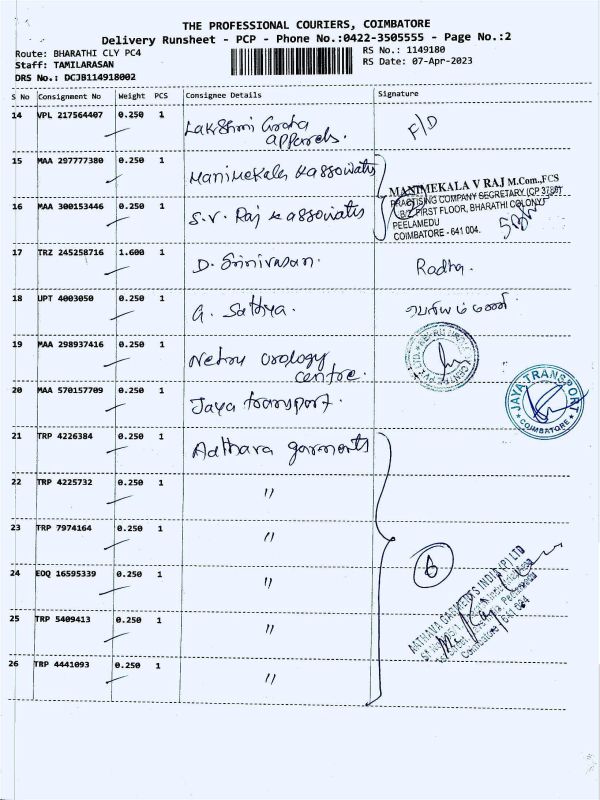 THE PROFESSIONAL COURIERS, COIMBATORE
Delivery Runsheet - PCP - Phone No.:0422-3505555 - Page No.:2
Route: BHARATHI CLY PC4
Staff: TAMILARASAN
DRS No.: DCJB114918002
RS No.: 1149180
RS Date: 07-Apr-2023
S No Consignment No Weight PCS Consignee Details Signature
14 VPL 217564407 0.250 1 Lakshmi Groha apparels. F/D
15 MAA 297777380 0.250 1 Manimekala & associates
16 MAA 300153446 0.250 1 S.V. Raj & associates
MANIMEKALA V RAJ M.Com.,FCS
PRACTISING COMPANY SECRETARY (CP 3768)
FIRST FLOOR, BHARATHI COLONY
PEELAMEDU
COIMBATORE - 641 004.
17 TRZ 245258716 1.600 1 D. Srinivasan. Radha.
18 UPT 4003050 0.250 1 G. Sathya.
19 MAA 298937416 0.250 1 Nehru urology centre.
20 MAA 570157709 0.250 1 Jaya transport.
JAYA TRANSPORT
★ COIMBATORE ★
21 TRP 4226384 0.250 1 Aathava garments
22 TRP 4225732 0.250 1 〃
23 TRP 7974164 0.250 1 〃
24 EOQ 16595339 0.250 1 〃
25 TRP 5409413 0.250 1 〃
26 TRP 4441093 0.250 1 〃
6
AATHAVA GARMENTS INDIA (P) LTD
Peelamedu
Coimbatore - 641 004